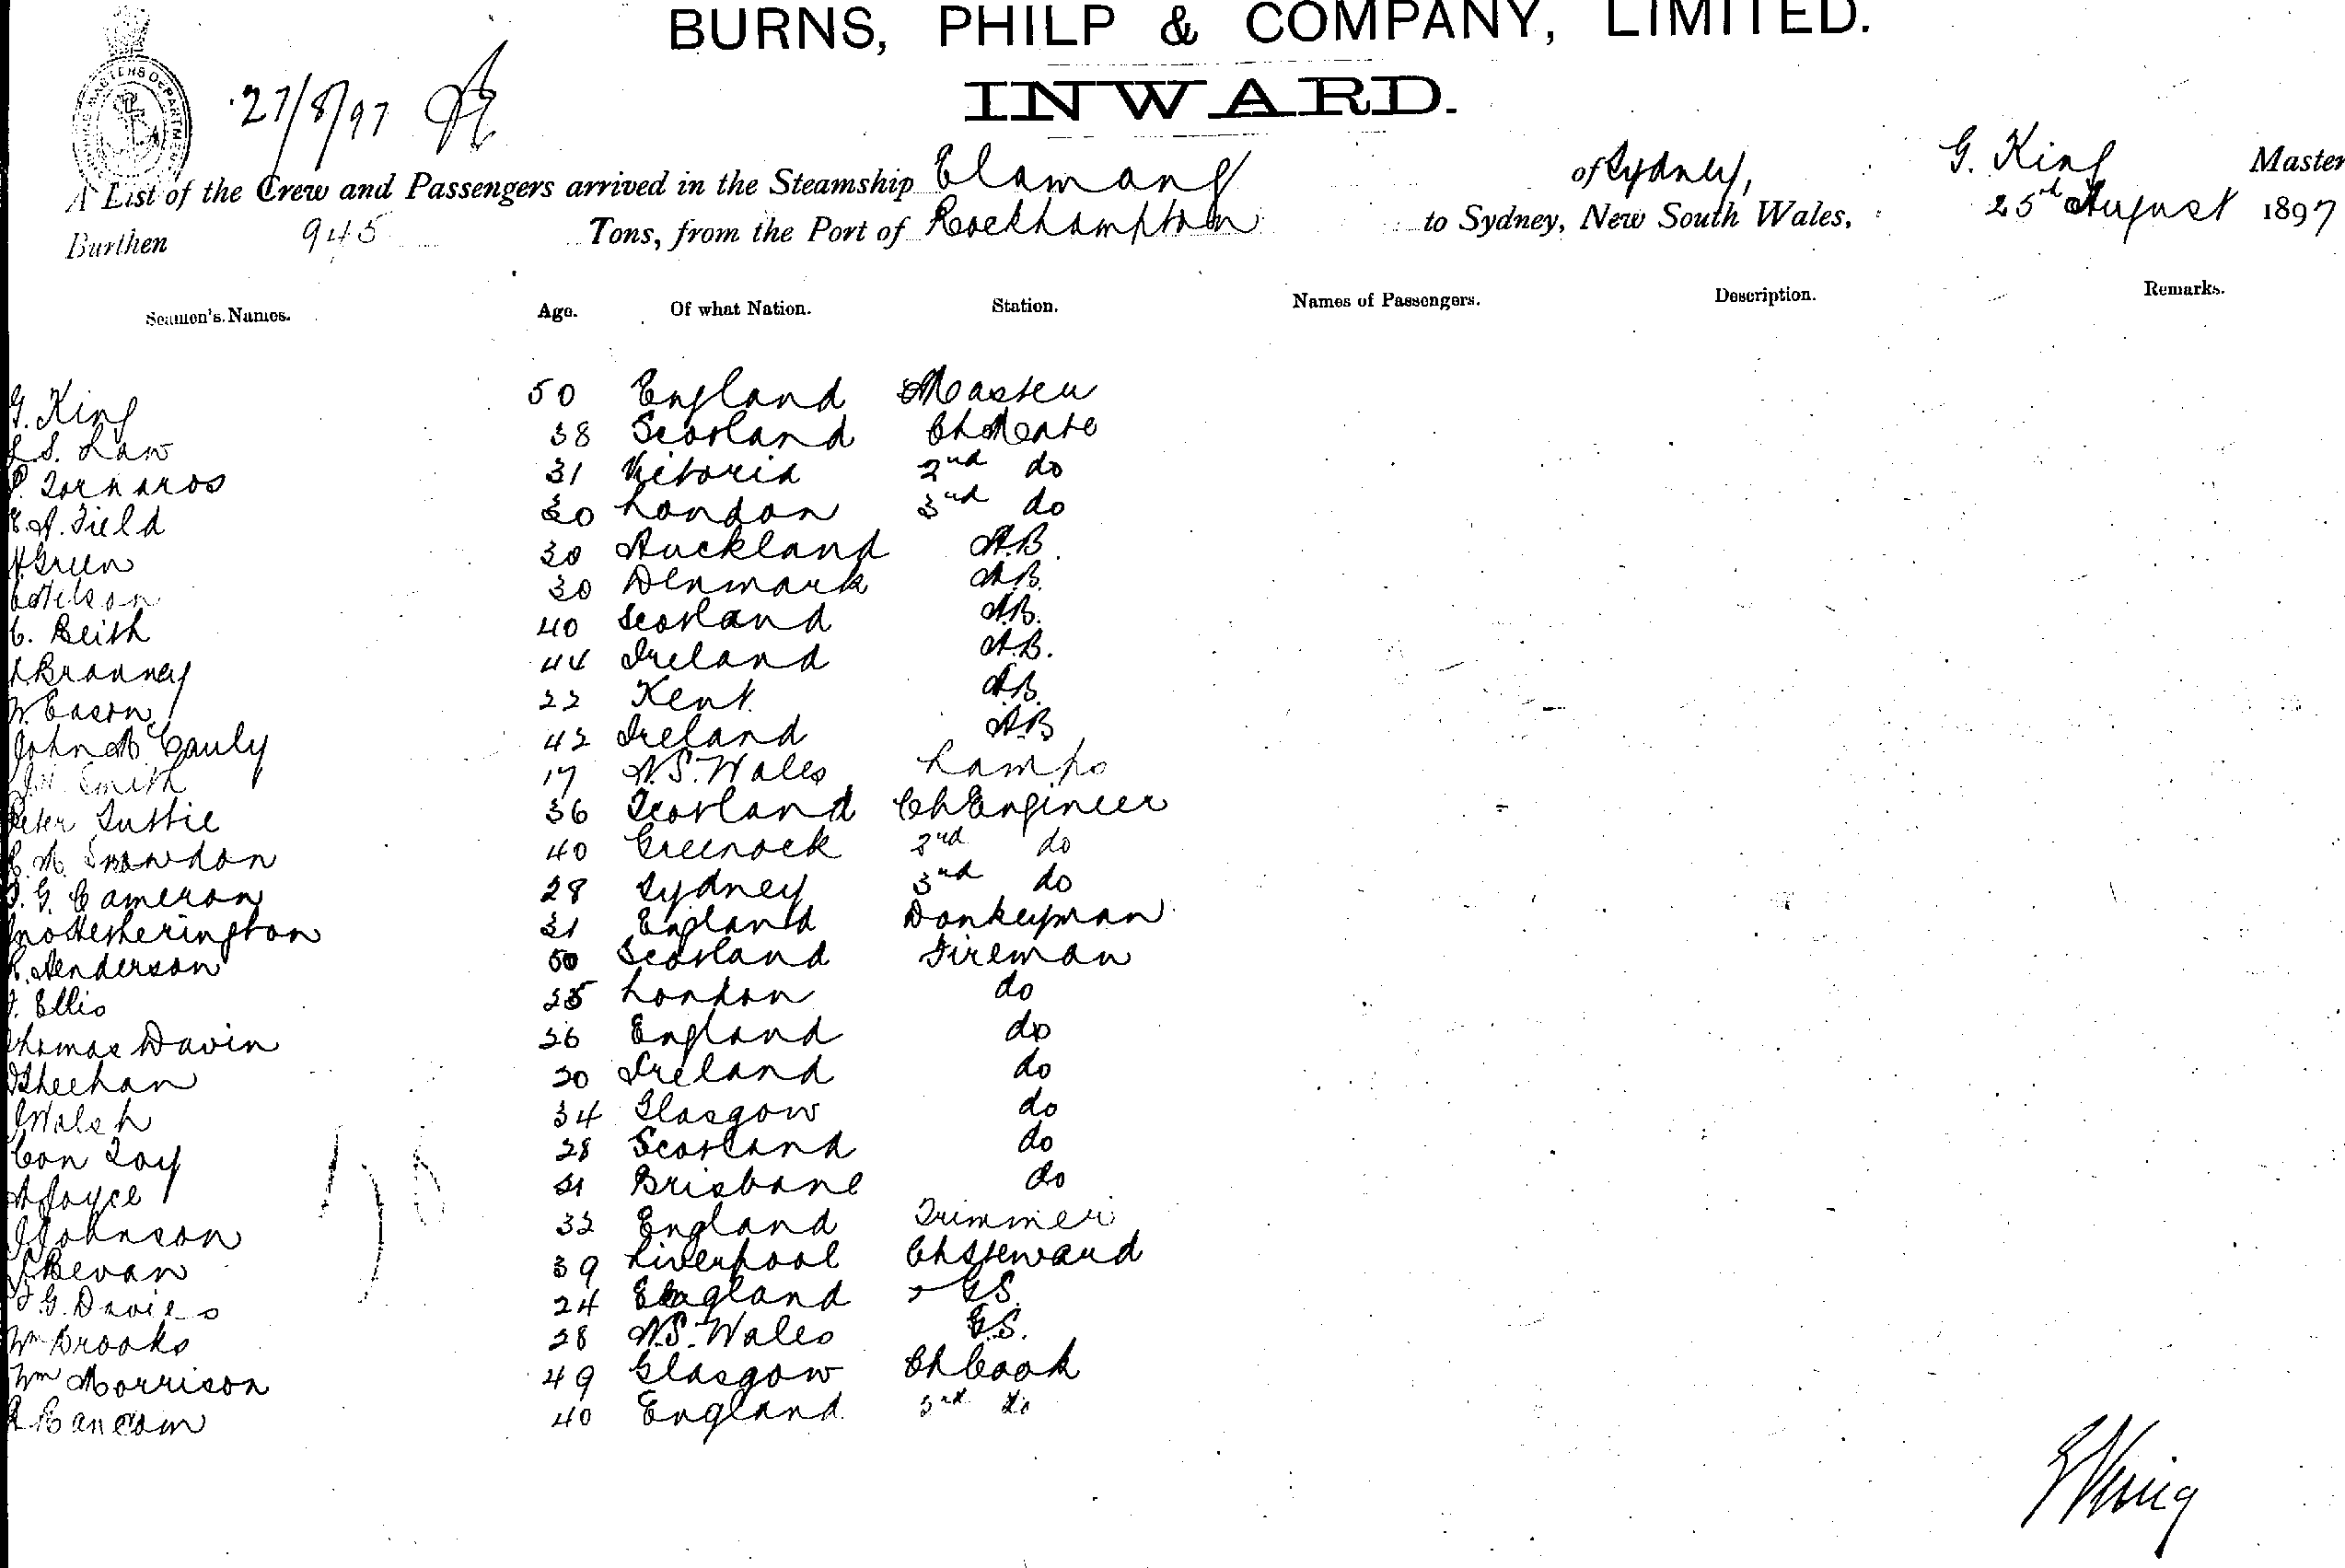 BURNS, PHILP & COMPANY, LIMITED.
INWARD.
27/8/97
A List of the Crew and Passengers arrived in the Steamship Elamang of Sydney, G. King Master
Burthen 945 Tons, from the Port of Rockhampton to Sydney, New South Wales, 25th August 1897
Seamen's Names. Age. Of what Nation. Station. Names of Passengers. Description. Remarks.
G. King 50 England Master
S. Law 38 Scotland Ch Mate
P. Tornaros 31 Victoria 2nd do
E. A. Field 30 London 3rd do
H Green 30 Auckland A.B.
C Nelson 30 Denmark A.B.
C. Beith 40 Scotland A.B.
Branney 44 Ireland A.B.
W. Eason 22 Kent A.B.
John McCauly 42 Ireland A.B
J.H. Smith 17 N.S. Wales Lamps
Peter Suttie 36 Scotland Ch Engineer
M. Snowdon 40 Greenock 2nd do
G. Cameron 28 Sydney 3rd do
Jno Hetherington 31 England Donkeyman
R. Henderson 50 Scotland Fireman
Ellis 25 London do
Thomas Davin 26 England do
Sheehan 30 Ireland do
J Walsh 34 Glasgow do
Con Toy 28 Scotland do
A Joyce Brisbane do
J Johnson 32 England Trimmer
Bevan 39 Liverpool Ch Steward
G. Davies 24 England 2 G.S.
Wm Brooks 28 N.S. Wales G.S.
Wm Morrison 49 Glasgow Ch Cook
Ransom 40 England do
G King